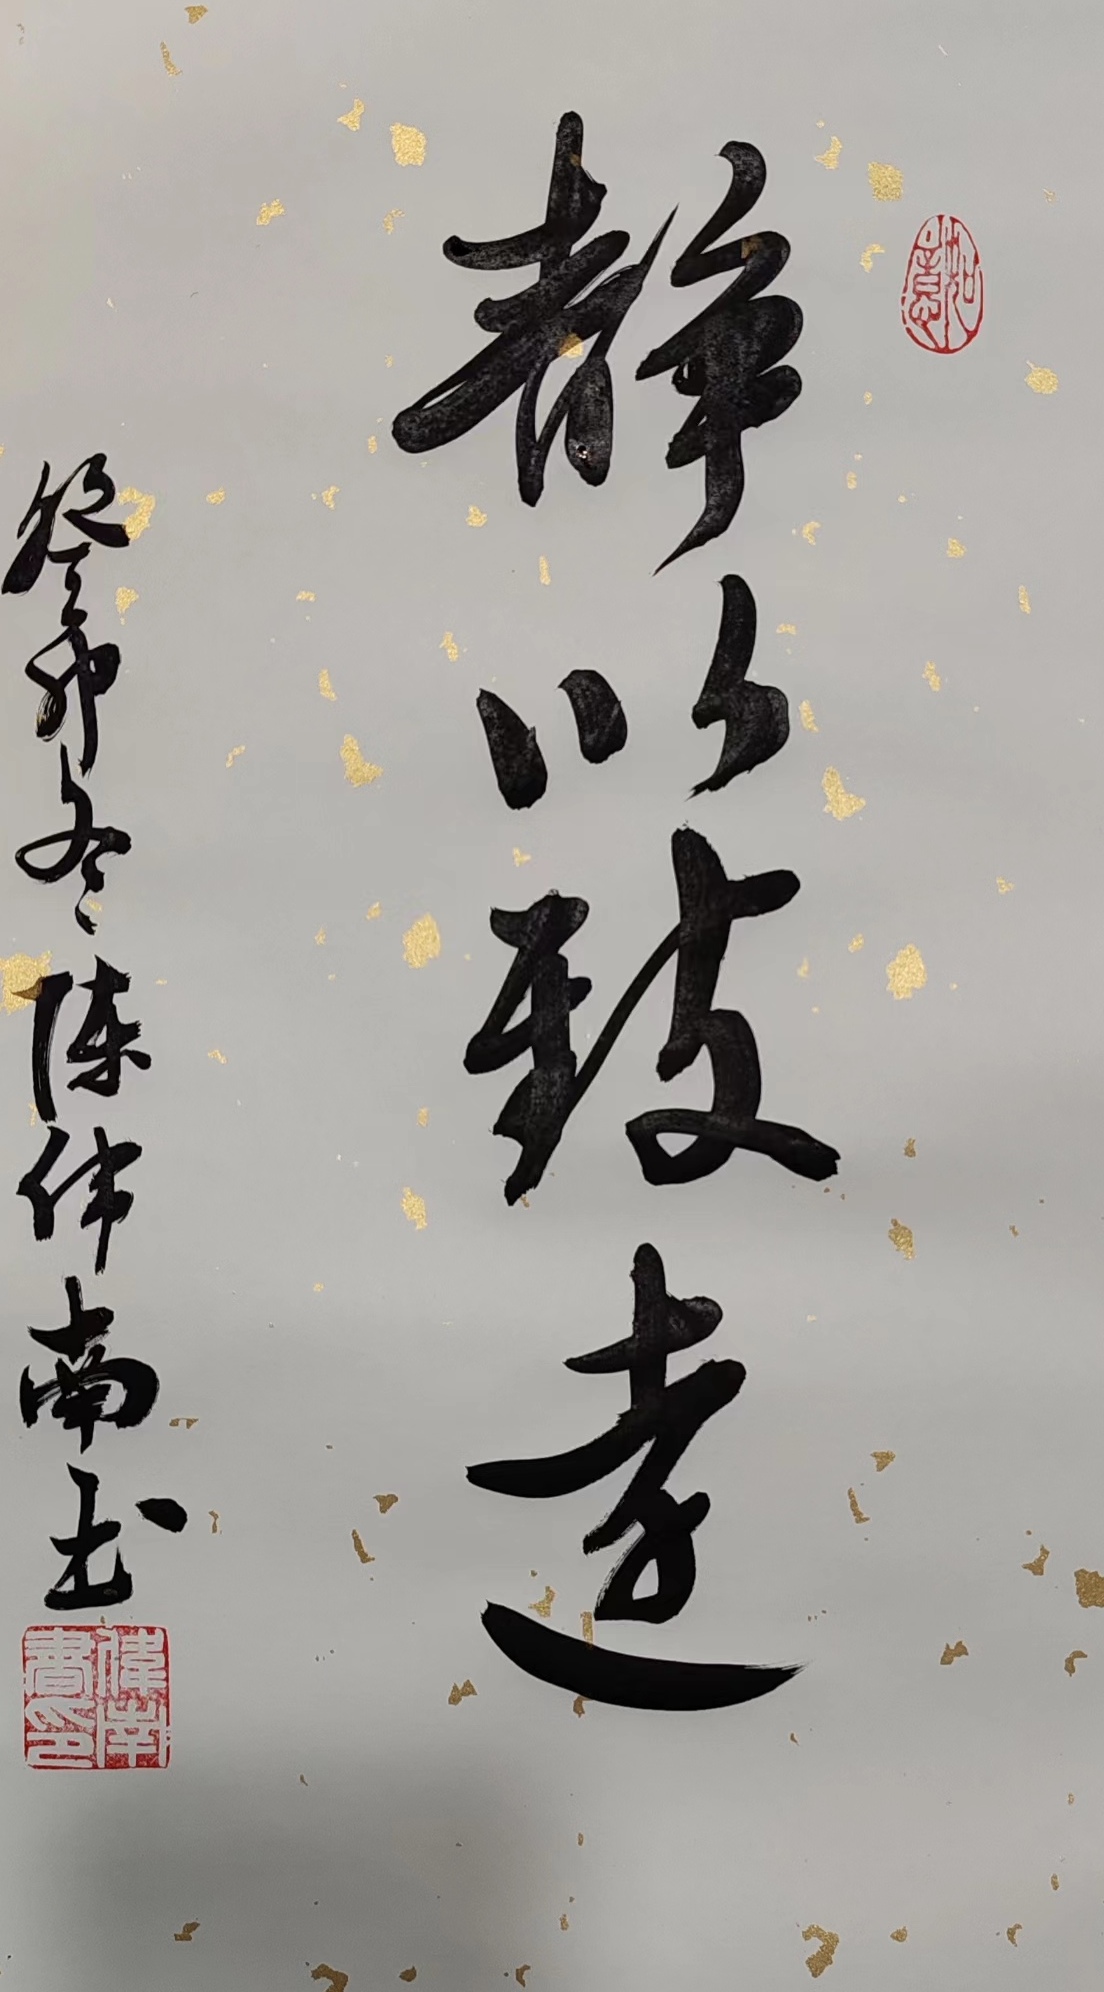 静以致远
癸卯冬陈伟南书
伟南书印